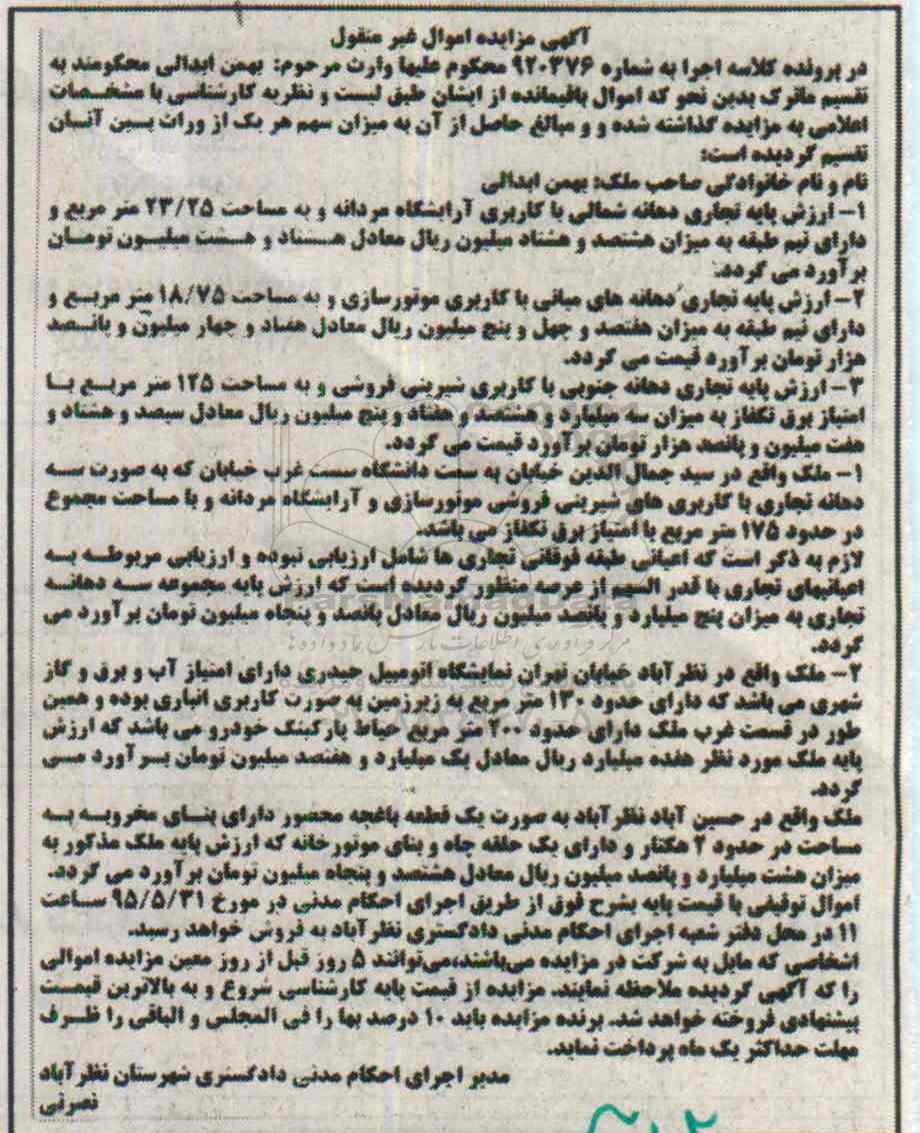 آگهی مزایده اموال غیر منقول
در پرونده کلاسه اجرا به شماره ۹۲۰۳۷۶ محکوم علیها وارث مرحوم: بهمن ابدالی محکومند به
تقسیم ماترک بدین نحو که اموال باقیمانده از ایشان طبق لیست و نظریه کارشناسی با مشخصات
اعلامی به مزایده گذاشته شده و و مبالغ حاصل از آن به میزان سهم هر یک از وراث بین آنان
تقسیم گردیده است:
نام و نام خانوادگی صاحب ملک: بهمن ابدالی
۱- ارزش پایه تجاری دهانه شمالی با کاربری آرایشگاه مردانه و به مساحت ۲۳/۲۵ متر مربع و
دارای نیم طبقه به میزان هشتصد و هشتاد میلیون ریال معادل هشتاد و هشت میلیون تومان
برآورد می گردد.
۲- ارزش پایه تجاری دهانه های میانی با کاربری موتورسازی و به مساحت ۱۸/۷۵ متر مربع و
دارای نیم طبقه به میزان هفتصد و چهل و پنج میلیون ریال معادل هفتاد و چهار میلیون و پانصد
هزار تومان برآورد قیمت می گردد.
۳- ارزش پایه تجاری دهانه جنوبی با کاربری شیرینی فروشی و به مساحت ۱۲۵ متر مربع با
امتیاز برق تکفاز به میزان سه میلیارد و هشتصد و هفتاد و پنج میلیون ریال معادل سیصد و هشتاد و
هفت میلیون و پانصد هزار تومان برآورد قیمت می گردد.
۱- ملک واقع در سید جمال الدین خیابان به سمت دانشگاه سمت غرب خیابان که به صورت سه
دهانه تجاری با کاربری های شیرینی فروشی موتورسازی و آرایشگاه مردانه و با مساحت مجموع
در حدود ۱۷۵ متر مربع با امتیاز برق تکفاز می باشد.
لازم به ذکر است که اعیانی طبقه فوقانی تجاری ها شامل ارزیابی نبوده و ارزیابی مربوطه به
اعیانیهای تجاری با قدر السهم از عرصه منظور گردیده است که ارزش پایه مجموعه سه دهانه
تجاری به میزان پنج میلیارد و پانصد میلیون ریال معادل پانصد و پنجاه میلیون تومان برآورد می
گردد.
۲- ملک واقع در نظرآباد خیابان تهران نمایشگاه اتومبیل حیدری دارای امتیاز آب و برق و گاز
شهری می باشد که دارای حدود ۱۳۰ متر مربع به زیرزمین به صورت کاربری انباری بوده و همین
طور در قسمت غرب ملک دارای حدود ۲۰۰ متر مربع حیاط پارکینگ خودرو می باشد که ارزش
پایه ملک مورد نظر هفده میلیارد ریال معادل یک میلیارد و هفتصد میلیون تومان برآورد می
گردد.
ملک واقع در حسین آباد نظرآباد به صورت یک قطعه باغچه محصور دارای بنای مخروبه به
مساحت در حدود ۲ هکتار و دارای یک حلقه چاه و بنای موتورخانه که ارزش پایه ملک مذکور به
میزان هشت میلیارد و پانصد میلیون ریال معادل هشتصد و پنجاه میلیون تومان برآورد می گردد.
اموال توقیفی با قیمت پایه بشرح فوق از طریق اجرای احکام مدنی در مورخ ۹۵/۵/۳۱ ساعت
۱۱ در محل دفتر شعبه اجرای احکام مدنی دادگستری نظرآباد به فروش خواهد رسید.
اشخاصی که مایل به شرکت در مزایده می‌باشند،می‌توانند ۵ روز قبل از روز معین مزایده اموالی
را که آگهی گردیده ملاحظه نمایند. مزایده از قیمت پایه کارشناسی شروع و به بالاترین قیمت
پیشنهادی فروخته خواهد شد. برنده مزایده باید ۱۰ درصد بها را فی المجلس و الباقی را ظرف
مهلت حداکثر یک ماه پرداخت نماید.
مدیر اجرای احکام مدنی دادگستری شهرستان نظرآباد
نصرتی